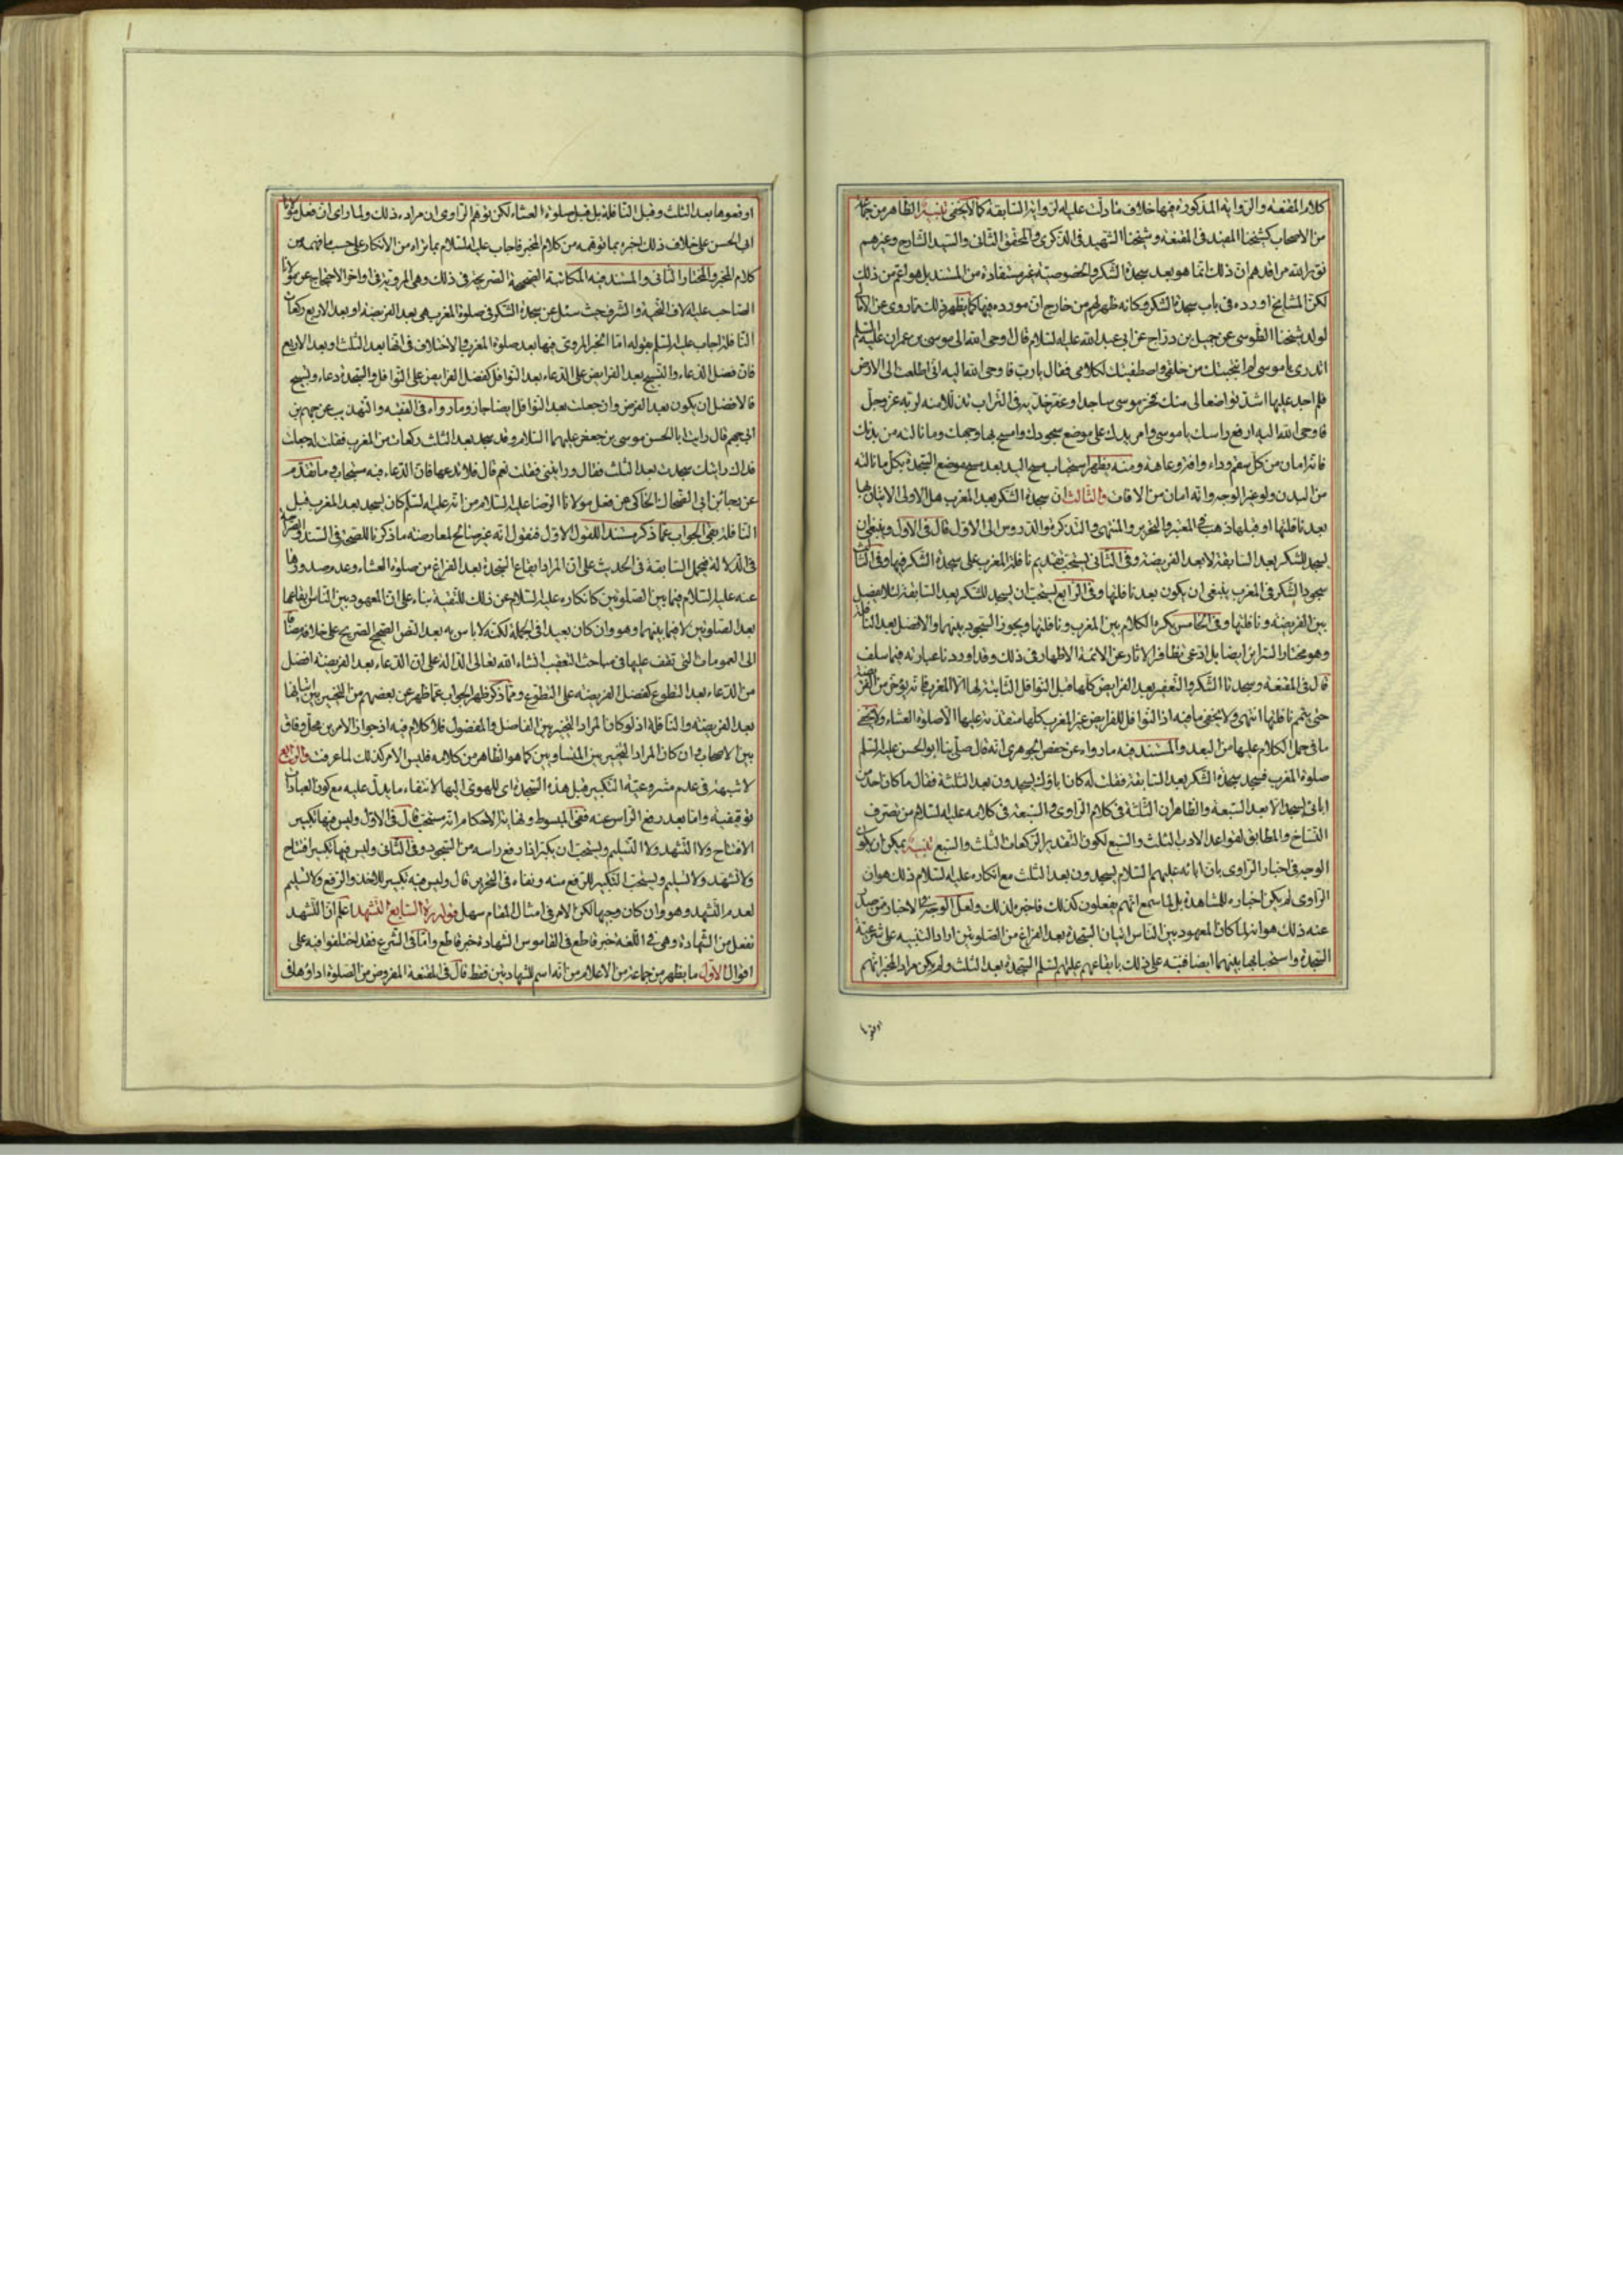 كلام المقنعة والرواية المذكورة فيها خلاف ما دلت عليه الرواية السابقة كما لا يخفى تنبيه الظاهر من جماعة
من الاصحاب كشيخنا المفيد في المقنعة وشيخنا الشهيد في الذكرى والمحقق الثاني والسيد الشارح وغيرهم
نور الله مراقدهم ان ذلك انما هو بعد سجدة الشكر والخصوصية غير مستفادة من المستند بل هو اعم من ذلك
لكن المشايخ اورده في باب سجدة الشكر وكانه ظهر لهم من خارج ان مورده فيها كما يظهر ذلك مما روى عن
لولد شيخنا الطوسى عن جميل بن دراج عن ابى عبد الله عليه السلام قال اوحى الله الى موسى بن عمران عليه السلم
اتدرى يا موسى لم انتجبتك من خلقى واصطفيتك لكلامى فقال يا رب فاوحى الله اليه انى اطلعت الى الارض
فلم اجد عليها اشد تواضعا لى منك فخر موسى ساجدا وعفر خديه في التراب تذللا منه لربه عز وجل
فاوحى الله اليه ارفع راسك يا موسى وامر يدك على موضع سجودك وامسح بها وجهك وما نالته من بدنك
فانه امان من كل سقم وداء وافة وعاهة ومنه يظهر استحباب مسح اليد بعد مسح موضع السجدة بكل ما نالته
من البدن ولو غير الوجه وانه امان من الافات والثالث ان سجدة الشكر بعد المغرب هل الاولى الاتيان بها
بعد نافلتها او قبلها ذهب في المعتبر والتحرير والمنتهى والتذكرة والدروس الى الاول قال في الاول وينبغى ان
يسجد للشكر بعد السابقة لا بعد الفريضة وفي الثانى يستحب تقديم نافلة المغرب على سجدة الشكر فيها وفي الثالث
سجود الشكر في المغرب ينبغى ان يكون بعد نافلتها وفي الرابع يستحب ان يسجد للشكر بعد السابعة لئلا يفصل
بين الفريضة ونافلتها وفي الخامس يكره الكلام بين المغرب ونافلتها ويجوز السجود بينهما والافضل بعد النافلة
وهو مختار السرائر ايضا بل ادعى تظافر الاثار عن الائمة الاطهار في ذلك وقد اوردنا عبارته فيما سلف
قال في المقنعة وسجدتا الشكر والتعفير بعد الفرايض كلها قبل النوافل الثابتة لها الا المغرب فانه يؤخر من الفريضة
حتى يتمم نافلتها انتهى ولا يخفى ما فيه اذ النوافل للفرايض غير المغرب كلها متقدمة عليها الا صلوة العشاء ولا يخفى
ما في حمل الكلام عليها من البعد والمستند فيه ما رواه عن حفص الجوهرى انه قال صلى بنا ابو الحسن عليه السلم
صلوة المغرب فسجد سجدة الشكر بعد السابعة فقلت له كان اباؤك يسجدون بعد الثلثة فقال ما كان احد من
ابائى يسجد الا بعد السبعة والظاهر ان الثلثة في كلام الراوى والسبعة في كلامه عليه السلام من تصرف
النساخ والمطابق لقواعد الادب الثلث والسبع لكون التقدير الركعات الثلث والسبع تنبيه يمكن ان يكون
الوجه في اخبار الراوى بان ابائه عليهم السلام يسجدون بعد الثلث مع انكاره عليه السلام ذلك هو ان
الراوى لم يكن اخباره للمشاهدة بل لما سمع انهم يفعلون كذلك فاخبره لذلك ولعل الوجه
عنه ذلك هو انه لما كان المعهود بين الناس اتيان السجدة بعد الفراغ من الصلوتين اراد التنبيه على شرعية
السجدة واستحبابها بينهما ايضا فنبه على ذلك بايقاعهم عليهم السلم السجدة بعد الثلث ولم يكن مراد المخبر انهم
اوقعوها
اوقعوها بعد الثلث وقبل النافلة بل قبل صلوة العشاء لكن توهم الراوى ان مراده ذلك ولما راى ان فعل مولانا
ابى الحسن على خلاف ذلك اخبره بما توهمه من كلام المخبر فاجاب عليه السلام بما نراه من الانكار على حسب ما فهمه من
كلام المخبر والمختار الثانى والمستند فيه المكاتبة الصحيحة الصريحة في ذلك وهى المروية في اواخر الاحتجاج عن مولانا
الصاحب عليه الاف التحية والشرف حيث سئل عن سجدة الشكر في صلوة المغرب هى بعد الفريضة او بعد الاربع ركعات
النافلة اجاب عليه السلم بقوله اما الخبر المروى فيها بعد صلوة المغرب والاختلاف في انها بعد الثلث او بعد الاربع
فان فضل الدعاء والتسبيح بعد الفرايض على الدعاء بعد النوافل كفضل الفرايض على النوافل والسجدة دعاء وتسبيح
فالافضل ان يكون بعد الفرض وان جعلت بعد النوافل ايضا جاز وما رواه في الفقيه والتهذيب عن جهم بن
ابى جهم قال رايت ابا الحسن موسى بن جعفر عليهما السلام وقد سجد بعد الثلث ركعات من المغرب فقلت له جعلت
فداك رايتك سجدت بعد الثلث فقال ورايتنى فقلت نعم قال فلا تدعها فان الدعاء فيه مستجاب وما تقدم
عن رجاء بن ابى الضحاك الحاكى عن فعل مولانا الرضا عليه السلام من انه عليه السلم كان يسجد بعد المغرب قبل
النافلة بقى الجواب عما ذكر مستندا للقول الاول فنقول انه غير صالح لمعارضة ما ذكرنا للصحة في السند والصراحة
في الدلالة فيحمل السابقة في الحديث على ان المراد ايقاع السجدة بعد الفراغ من صلوة العشاء وعدم صدورها
عنه عليه السلام فيما بين الصلوتين كانكاره عليه السلام عن ذلك للتقية بناء على ان المعهود بين الناس ايقاعها
بعد الصلوتين لا فيما بينهما وهو وان كان بعيدا في الجملة لكنه لا باس به بعد النص الصحيح الصريح على خلافه مضافا
الى العمومات التى تقف عليها في مباحث التعقيب انشاء الله تعالى الدالة على ان الدعاء بعد الفريضة افضل
من الدعاء بعد التطوع كفضل الفريضة على التطوع ومما ذكر ظهر الجواب عما ظهر عن بعضهم من التخيير بين اتيانها
بعد الفريضة والنافلة اذ لو كان المراد التخيير بين الفاضل والمفضول فلا كلام فيه اذ جواز الامرين محل وفاق
بين الاصحاب وان كان المراد التخيير بين المتساويين كما هو الظاهر من كلامه فليس الامر كذلك لما عرفت والرابع
لا شبهة في عدم مشروعية التكبير قبل هذه السجدة اى للهوى اليها لانتفاء ما يدل عليه مع كون العبادات
توقيفية واما بعد رفع الراس عنه ففى المبسوط ونهاية الاحكام انه مستحب قال في الاول وليس فيها تكبير
الافتتاح ولا التشهد ولا التسليم ويستحب ان يكبر اذا رفع راسه من السجود وفي الثانى وليس فيها تكبير افتتاح
ولا تشهد ولا تسليم ويستحب التكبير للرفع منه ونفاه في التحرير قال وليس فيه تكبير للاخذ والرفع ولا تسليم
لعدم التشهد وهو وان كان وجيها لكن الامر في امثال المقام سهل قوله ره السابع التشهد اعلم ان التشهد
تفعل من الشهادة وهى في اللغة خبر قاطع في القاموس الشهادة خبر قاطع واما في الشرع فقد اختلفوا فيه على
اقوال الاول ما يظهر من جماعة من الاعلام من انه اسم للشهادتين فقط قال في المقنعة المفروض من الصلوة اداؤها في